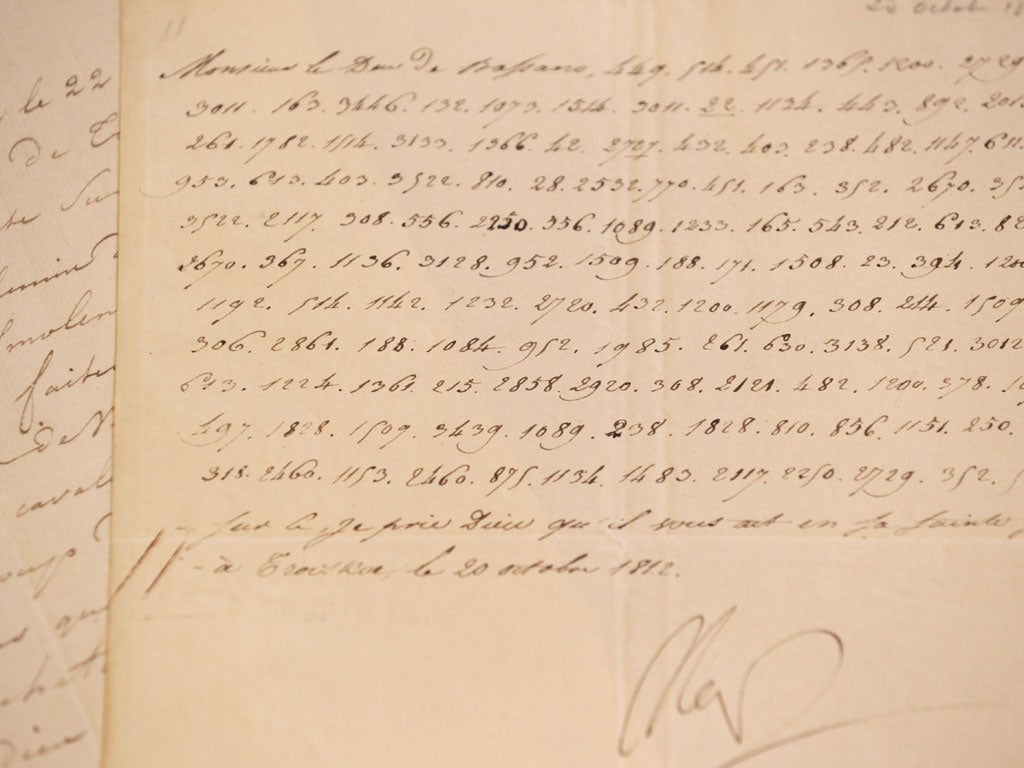 le 22
20 octobre
Monsieur le Duc de Bassano, 449. 514. 451. 1365. 1200. 2729
3011. 163. 3446. 132. 1073. 1544. 3011. 22. 1134. 443. 892.
261. 1782. 1114. 3133. 1366. 42. 2727. 432. 403. 238. 482. 1147. 611.
953. 613. 403. 3522. 810. 28. 2532. 770. 451. 163. 352. 2670.
3522. 2117. 308. 556. 2250. 356. 1089. 1233. 165. 543. 212. 613.
2670. 367. 1136. 3128. 952. 1509. 188. 171. 1508. 23. 394. 1200
1192. 514. 1142. 1232. 2720. 432. 1200. 1179. 308. 214. 1509
306. 2861. 188. 1084. 952. 1985. 261. 630. 3138. 521. 3012
613. 1224. 1361. 215. 2858. 2920. 308. 2121. 482. 1200. 378.
497. 1828. 1509. 3439. 1089. 238. 1828. 810. 856. 1151. 250.
318. 2460. 1153. 2460. 875. 1134. 1483. 2117. 2250. 2729. 352.
Sur ce je prie Dieu qu'il vous ait en sa sainte
à Troiskoe, le 20 octobre 1812.
Nap
faites
Dieu